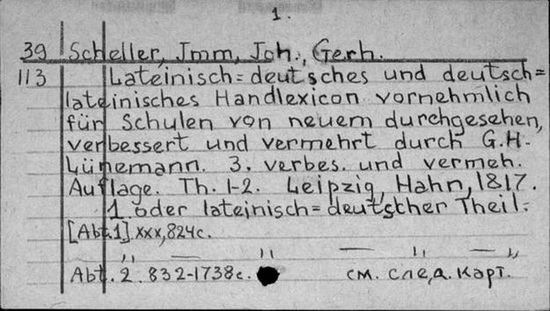 1.
39 Scheller, Jmm, Joh., Gerh.
113 Lateinisch=deutsches und deutsch=
lateinisches Handlexicon vornehmlich
für Schulen von neuem durchgesehen,
verbessert und vermehrt durch G.H.
Lünemann. 3. verbes. und vermeh.
Auflage. Th. 1-2. Leipzig, Hahn, 1817.
1. oder lateinisch=deutscher Theil.
[Abt.1] XXX, 824c.
" " — — " —
Abt. 2. 832-1738c. см. след. карт.